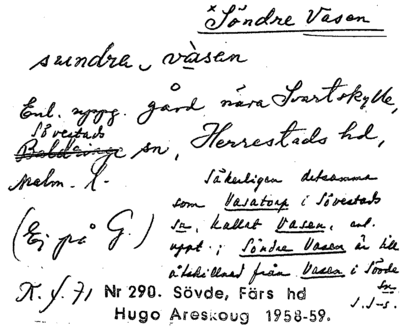 × Söndre Vasen
sundre vàsen
Enl. uppg. gård nära Svartskylle,
Sövestads
Baldringe sn, Herrestads hd,
Malm. l.
Säkerligen detsamma
som Vasatorp i Sövestads
(Ej på G.)
sn, kallat Vasen, enl.
uppt.; Söndre Vasen är till
åtskillnad från Vasen i Sövde
sn
R. f. 71 Nr 290. Sövde, Färs hd
Hugo Areskoug 1958-59.